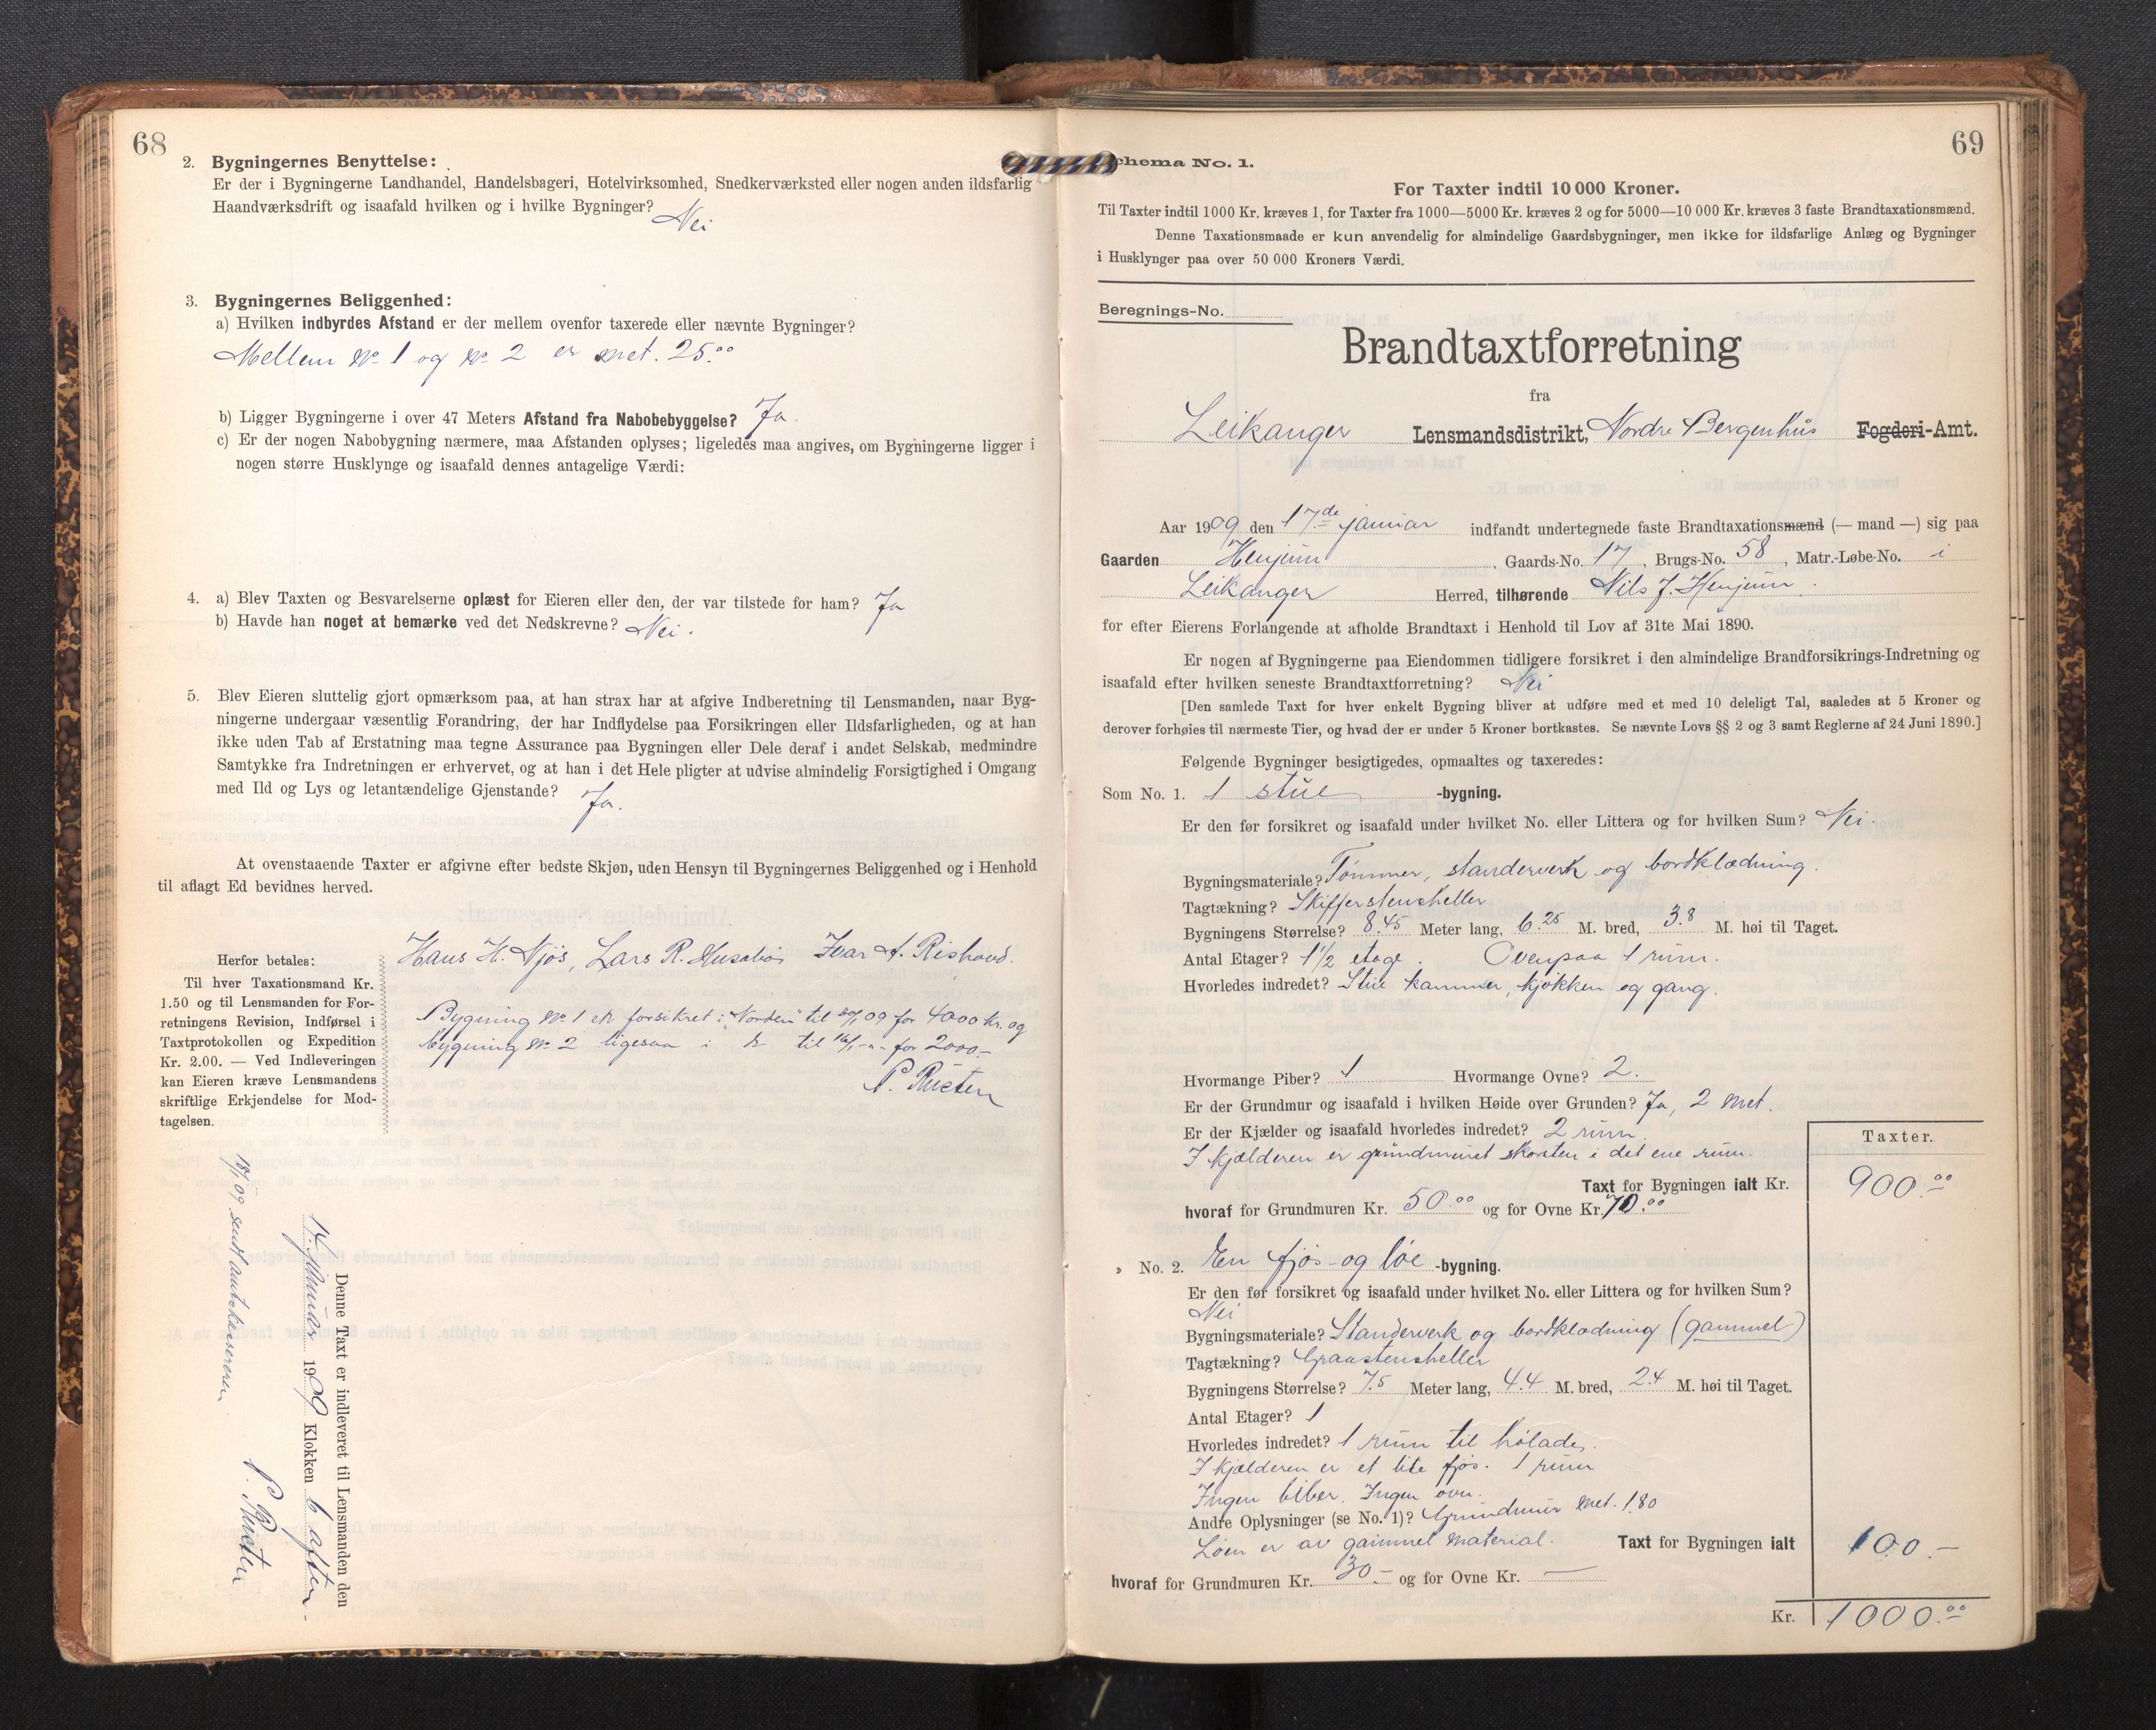 68
2. Bygningernes Benyttelse:
Er der i Bygningerne Landhandel, Handelsbageri, Hotelvirksomhed, Snedkerværksted eller nogen anden ildsfarlig
Haandværksdrift og isaafald hvilken og i hvilke Bygninger? Nei
3. Bygningernes Beliggenhed:
a) Hvilken indbyrdes Afstand er der mellem ovenfor taxerede eller nævnte Bygninger?
Mellem No 1 og No 2 er met. 25.00
b) Ligger Bygningerne i over 47 Meters Afstand fra Nabobebyggelse? Ja.
c) Er der nogen Nabobygning nærmere, maa Afstanden oplyses; ligeledes maa angives, om Bygningerne ligger i
nogen større Husklynge og isaafald dennes antagelige Værdi:
4. a) Blev Taxten og Besvarelserne oplæst for Eieren eller den, der var tilstede for ham? Ja
b) Havde han noget at bemærke ved det Nedskrevne? Nei.
5. Blev Eieren sluttelig gjort opmærksom paa, at han strax har at afgive Indberetning til Lensmanden, naar Byg-
ningerne undergaar væsentlig Forandring, der har Indflydelse paa Forsikringen eller Ildsfarligheden, og at han
ikke uden Tab af Erstatning maa tegne Assurance paa Bygningen eller Dele deraf i andet Selskab, medmindre
Samtykke fra Indretningen er erhvervet, og at han i det Hele pligter at udvise almindelig Forsigtighed i Omgang
med Ild og Lys og letantændelige Gjenstande? Ja.
At ovenstaaende Taxter er afgivne efter bedste Skjøn, uden Hensyn til Bygningernes Beliggenhed og i Henhold
til aflagt Ed bevidnes herved.
Hans H. Njøs, Lars R. Husabø Ivar A. Rishovd.
Herfor betales:
Til hver Taxationsmand Kr.
1.50 og til Lensmanden for For-
retningens Revision, Indførsel i
Taxtprotokollen og Expedition
Kr. 2.00. — Ved Indleveringen
kan Eieren kræve Lensmandens
skriftlige Erkjendelse for Mod-
tagelsen.
Bygning No 1 er forsikret i "Norden" til 09 for 4000 kr. og
bygning No 2 ligesaa i til 16/1 for 2000.-
P. Risten
Denne Taxt er indleveret til Lensmanden den
14. januar 1909 Klokken 6 aften.
18/1 09 sendt amtskassereren
P. Risten
69
chema No. 1.
For Taxter indtil 10 000 Kroner.
Til Taxter indtil 1000 Kr. kræves 1, for Taxter fra 1000—5000 Kr. kræves 2 og for 5000—10 000 Kr. kræves 3 faste Brandtaxationsmænd.
Denne Taxationsmaade er kun anvendelig for almindelige Gaardsbygninger, men ikke for ildsfarlige Anlæg og Bygninger
i Husklynger paa over 50 000 Kroners Værdi.
Beregnings-No.
Brandtaxtforretning
fra
Leikanger Lensmandsdistrikt, Nordre Bergenhus Fogderi-Amt.
Aar 1909 den 17de januar indfandt undertegnede faste Brandtaxationsmænd (— mand —) sig paa
Gaarden Henjum, Gaards-No. 17, Brugs-No. 58, Matr.-Løbe-No. i
Leikanger Herred, tilhørende Nils J. Henjum.
for efter Eierens Forlangende at afholde Brandtaxt i Henhold til Lov af 31te Mai 1890.
Er nogen af Bygningerne paa Eiendommen tidligere forsikret i den almindelige Brandforsikrings-Indretning og
isaafald efter hvilken seneste Brandtaxtforretning? Nei
[Den samlede Taxt for hver enkelt Bygning bliver at udføre med et med 10 deleligt Tal, saaledes at 5 Kroner og
derover forhøies til nærmeste Tier, og hvad der er under 5 Kroner bortkastes. Se nævnte Lovs §§ 2 og 3 samt Reglerne af 24 Juni 1890.]
Følgende Bygninger besigtigedes, opmaaltes og taxeredes:
Som No. 1. 1 stue -bygning.
Er den før forsikret og isaafald under hvilket No. eller Littera og for hvilken Sum? Nei.
Bygningsmateriale? Tømmer, standerverk og bordklædning.
Tagtækning? Skifferstensheller
Bygningens Størrelse? 8.45 Meter lang, 6.25 M. bred, 3.8 M. høi til Taget.
Antal Etager? 1 1/2 etage. Ovenpaa 1 rum.
Hvorledes indredet? Stue kammer, kjøkken og gang.
Hvormange Piber? 1 Hvormange Ovne? 2.
Er der Grundmur og isaafald i hvilken Høide over Grunden? Ja, 2 met.
Er der Kjælder og isaafald hvorledes indredet? 2 rum.
I kjælderen er grundmuret skorsten i det ene rum.
Taxter.
Taxt for Bygningen ialt Kr. 900.00
hvoraf for Grundmuren Kr. 50.00 og for Ovne Kr. 70.00
» No. 2. En fjøs- og løe -bygning.
Er den før forsikret og isaafald under hvilket No. eller Littera og for hvilken Sum?
Nei
Bygningsmateriale? Standerverk og bordklædning (gammel)
Tagtækning? Graastensheller
Bygningens Størrelse? 7.5 Meter lang, 4.4 M. bred, 2.4 M. høi til Taget.
Antal Etager? 1
Hvorledes indredet? 1 rum til høladе.
I kjælderen er et lite fjøs. 1 rum
Ingen piber. Ingen ovn.
Andre Oplysninger (se No. 1)? Grundmur met. 1.80
Løen er av gammel material. Taxt for Bygningen ialt 100.-
hvoraf for Grundmuren Kr. 30.- og for Ovne Kr. —
Kr. 1000.00